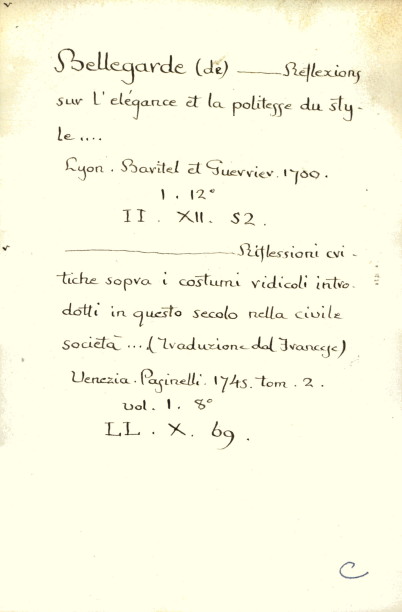 Bellegarde (de) —— Réflexions
sur l'elégance et la politesse du sty-
le....
Lyon. Baritel et Guerrier. 1700.
1. 12°
II. XII. 52.
———— Riflessioni cri-
tiche sopra i costumi ridicoli intro-
dotti in questo secolo nella civile
società ... (Traduzione dal Francese)
Venezia. Pasinelli. 1745. tom. 2.
vol. 1. 8°
LL. X. 69.
C